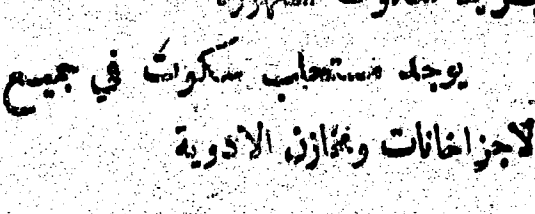 يوجد مستحلب سكوت في جميع
الاجزاخانات ومخازن الادوية